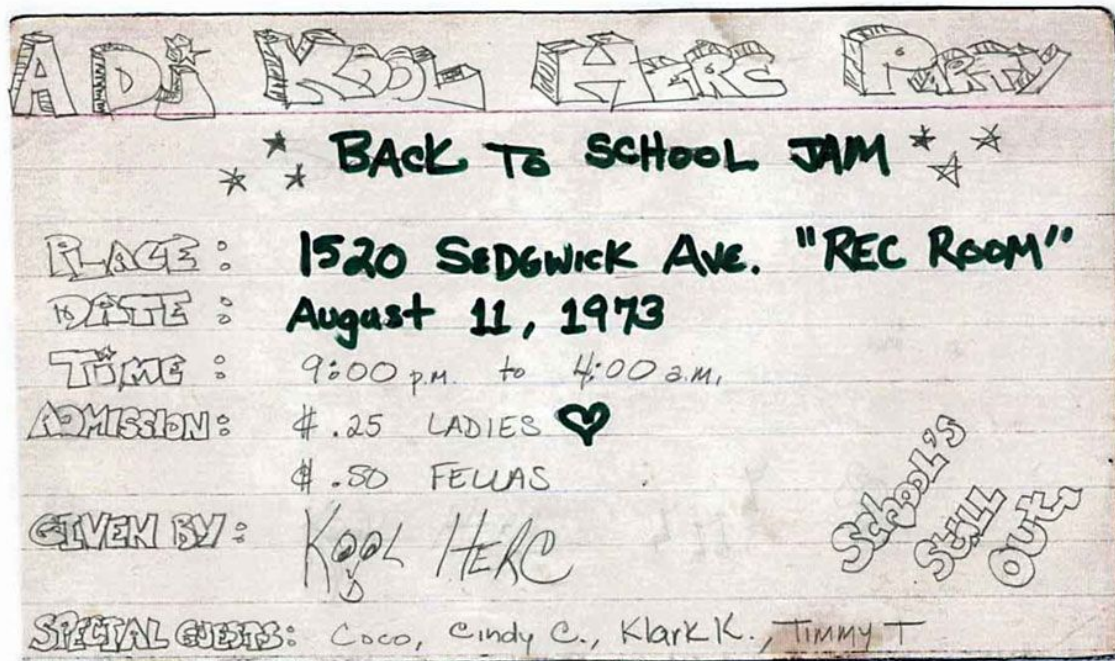 A DJ KOOL HERC PARTY
BACK TO SCHOOL JAM
PLACE: 1520 SEDGWICK AVE. "REC ROOM"
DATE: August 11, 1973
TIME: 9:00 p.m. to 4:00 a.m.
ADMISSION: $.25 LADIES
$.50 FELLAS
GIVEN BY: KOOL HERC
SPECIAL GUESTS: Coco, Cindy C., Klark K., Timmy T
School's
Still
Out.